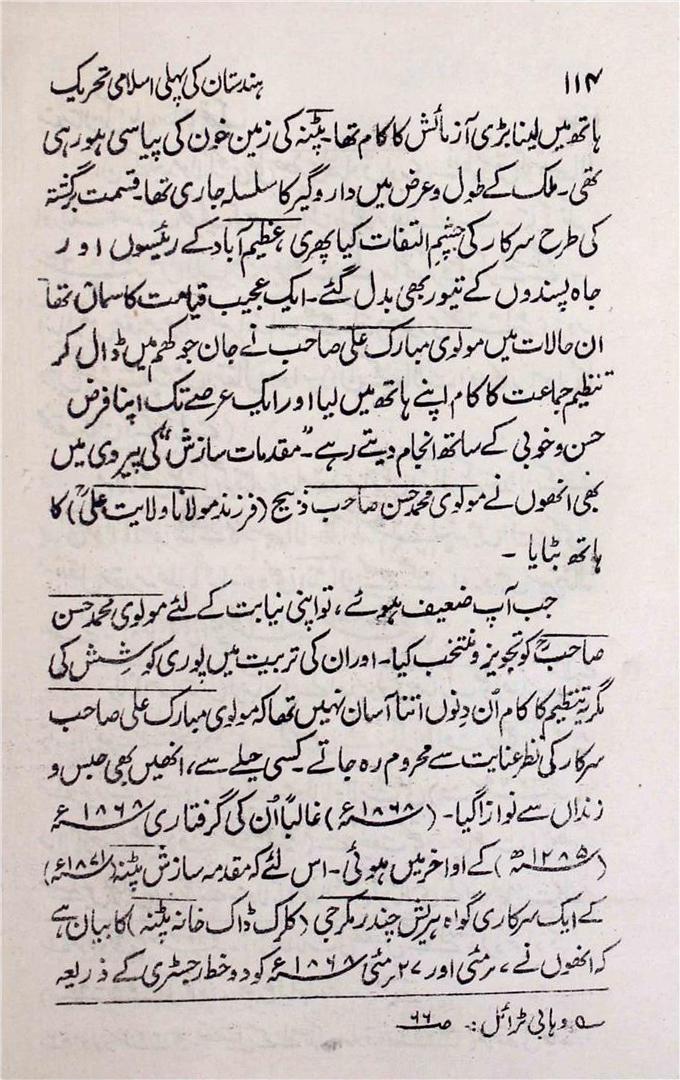 ۱۱۴ ہندستان کی پہلی اسلامی تحریک
ہاتھ میں لینا بڑی آزمائش کا کام تھا۔ پٹنہ کی زمین خون کی پیاسی ہو رہی
تھی۔ ملک کے طول و عرض میں دار و گیر کا سلسلہ جاری تھا۔ قسمت برگشتہ
کی طرح سرکار کی چشمِ التفات کیا پھری، عظیم آباد کے رئیسوں اور
جاہ پسندوں کے تیور بھی بدل گئے۔ ایک عجیب قیامت کا سماں تھا
ان حالات میں مولوی مبارک علی صاحب نے جان جوکھم میں ڈال کر
تنظیم جماعت کا کام اپنے ہاتھ میں لیا اور ایک عرصے تک اپنا فرض
حسن و خوبی کے ساتھ انجام دیتے رہے۔ "مقدمات سازش" کی پیروی میں
بھی انھوں نے مولوی محمد حسن صاحب ذبیح (فرزند مولانا ولایت علیؒ) کا
ہاتھ بٹایا ۔
جب آپ ضعیف ہوئے، تو اپنی نیابت کے لئے مولوی محمد حسن
صاحبؒ کو تجویز و منتخب کیا۔ اور ان کی تربیت میں پوری کوشِش کی
مگر یہ تنظیم کا کام اُن دِنوں اتنا آسان نہیں تھا کہ مولوی مبارک علی صاحب
سرکار کی نظر عنایت سے محروم رہ جاتے۔ کسی حیلے سے، انھیں بھی حبس و
زنداں سے نوازا گیا۔ (۱۸۶۸ء) غالباً اُن کی گرفتاری ۱۸۶۸ء
(۱۲۸۵ھ) کے اواخر میں ہوئی۔ اس لئے کہ مقدمہ سازش پٹنہ (۱۸۷۱ء)
کے ایک سرکاری گواہ ہریش چندر مکرجی (کلرک ڈاک خانہ پٹنہ) کا بیان ہے
کہ انھوں نے ۷ مئی اور ۲۷ مئی ۱۸۶۸ء کو دو خط رجسٹری کے ذریعہ
وہابی ٹرائل :۔ صـ ۶۶